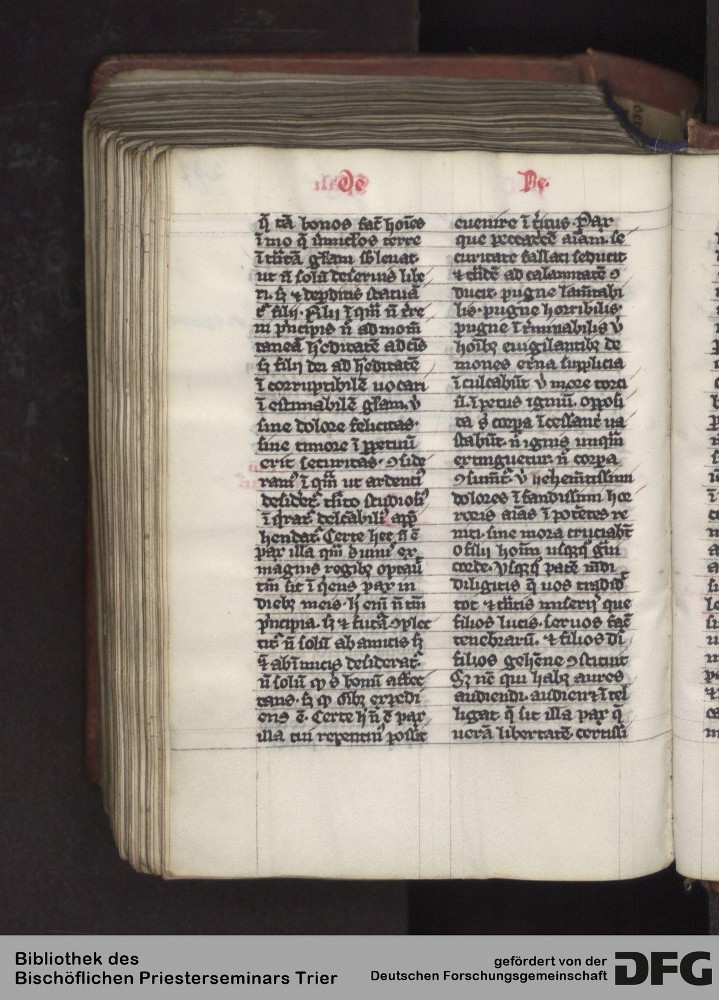 De
De
q̄ tā bonos fac̄t hoīes
ī mo q̄ īimicos terre
ī tātā gl̄am sb̄leuat
ut n̄ solū deserius libe
ri. sꝫ & depditis statuā
filij. filij ī qm̄ n̄ t̄re
ni p̄ncipis n̄ ad mom̄
taneā h̓editatē ad eīs
sꝫ filij dei ad h̓editatē
ī corruptibilē uocari
ī estimabilē gl̄am. v̓
sine dolore felicitas.
sine timore ī ꝑpetuū
erit securitas. ꝯside
ram̓ ī qm̄ ut ardenti̓
studiosi̓
delc̄abili̓ apꝑ
hendat̓. Certe hec n̄ ē
pax illa qm̄ diuiti̓ ex
magnis regibꝫ optaū
tm̄ sit ī q̓ens pax in
diebꝫ meis. h̓ em̄ n̄ tm̄
p̄ncipia. sꝫ & futā ꝯplec
tit̓ n̄ solū ab amicis sꝫ
& ab īimicis desiderat̓.
n̄ solū ꝙ s̓ bonū affec
tans. sꝫ ꝙ oībꝫ expedi
ens ē. Certe h̓ n̄ ē pax
illa cui repentin̓ possit
euenire ī t̓itus. Pax
que peccatcē aīam. se
curitate fallaci seducit
& tādē ad calamitatē ꝯ
ducit. pugne lam̄tabi
lis. pugne horribilis.
pugne īt̓minabilis v̓
hoībꝫ euigilantibꝫ de
mones et̓na supplicia
īculcabūt v̓ more torci
ū. īpetus igniū. opposi
ta s̓ corpa īcessant̓ ua
stabūt. n̄ ignis unqm̄
extinguetur. n̄ corpa
ꝯsumēt̓. v̓ uehemētissimi
dolores īfandissimi hor
roris aīas īpotētes re
niti. sine mora cruciabt̄
o filij hoīm usqꝫqꝫ g̓ui
corde. Usqꝫqꝫ patrē mdi
diligitis q̄ uos tradid̓
tot & tātis miserijs que
filios lucis. seruos fac̄
tenebrarū. & filios di̓
filios gehēne ꝯstituit
Sꝫ nē qui habꝫ aures
audiendi. audiens ītel
ligat q̄ sit illa pax q̄
uerā libertatē certissi
Bibliothek des
Bischöflichen Priesterseminars Trier
gefördert von der
Deutschen Forschungsgemeinschaft
DFG